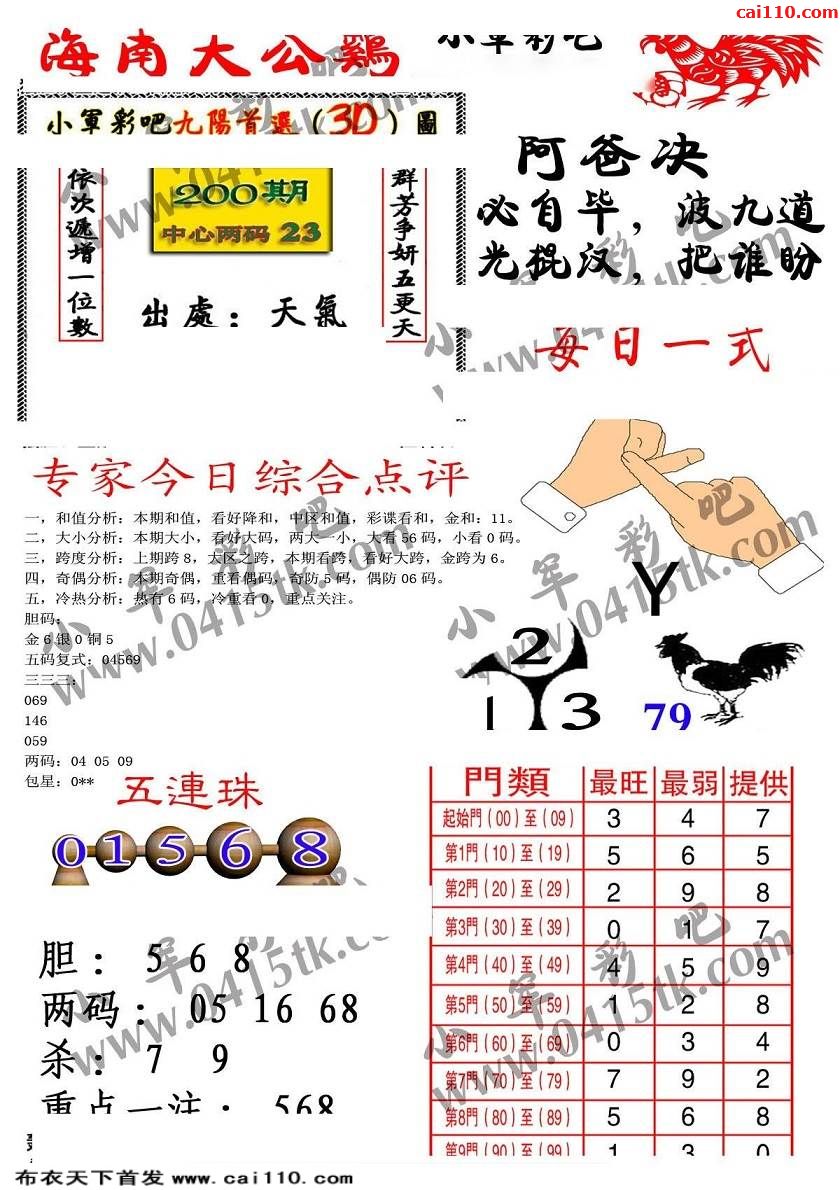 cai110.com
海南大公鷄
小軍彩吧
小軍彩吧九陽首選(3D)圖
依次遞增一位數
200期
中心两码 23
群芳争妍五更天
出處：天氣
阿爸决
必自毕，波九道
光棍汉，把谁盼
每日一式
专家今日综合点评
一，和值分析：本期和值，看好降和，中区和值，彩谍看和，金和：11。
二，大小分析：本期大小，看好大码，两大一小，大看56码，小看0码。
三，跨度分析：上期跨8，大区之跨，本期看跨，看好大跨，金跨为6。
四，奇偶分析：本期奇偶，重看偶码，奇防5码，偶防06码。
五，冷热分析：热有6码，冷重看0，重点关注。
胆码：
金6银0铜5
五码复式：04569
三三三：
069
146
059
两码：04 05 09
包星：0**
Y
2
1 3
79
五連珠
0 1 5 6 8
胆： 5 6 8
两码： 05 16 68
杀： 7 9
重点一注： 568
門類 最旺 最弱 提供
起始門(00)至(09) 3 4 7
第1門(10)至(19) 5 6 5
第2門(20)至(29) 2 9 8
第3門(30)至(39) 0 1 7
第4門(40)至(49) 4 5 9
第5門(50)至(59) 1 2 8
第6門(60)至(69) 0 3 4
第7門(70)至(79) 7 9 2
第8門(80)至(89) 5 6 8
第9門(90)至(99) 1 3 0
小军彩吧
www.0415tk.com
小军彩吧
www.0415tk.com
小军彩吧
www.0415tk.com
小军彩吧
www.0415tk.com
小军彩吧
www.0415tk.com
小军彩吧
www.0415tk.com
布衣天下首发 www.cai110.com